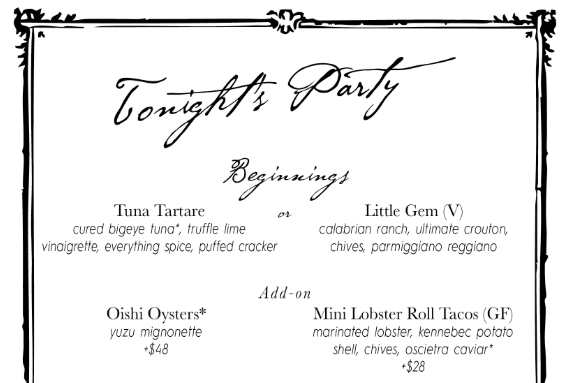 Tonight's Party
Beginnings
Tuna Tartare
cured bigeye tuna*, truffle lime
vinaigrette, everything spice, puffed cracker
or
Little Gem (V)
calabrian ranch, ultimate crouton,
chives, parmiggiano reggiano
Add-on
Oishi Oysters*
yuzu mignonette
+$48
Mini Lobster Roll Tacos (GF)
marinated lobster, kennebec potato
shell, chives, oscietra caviar*
+$28